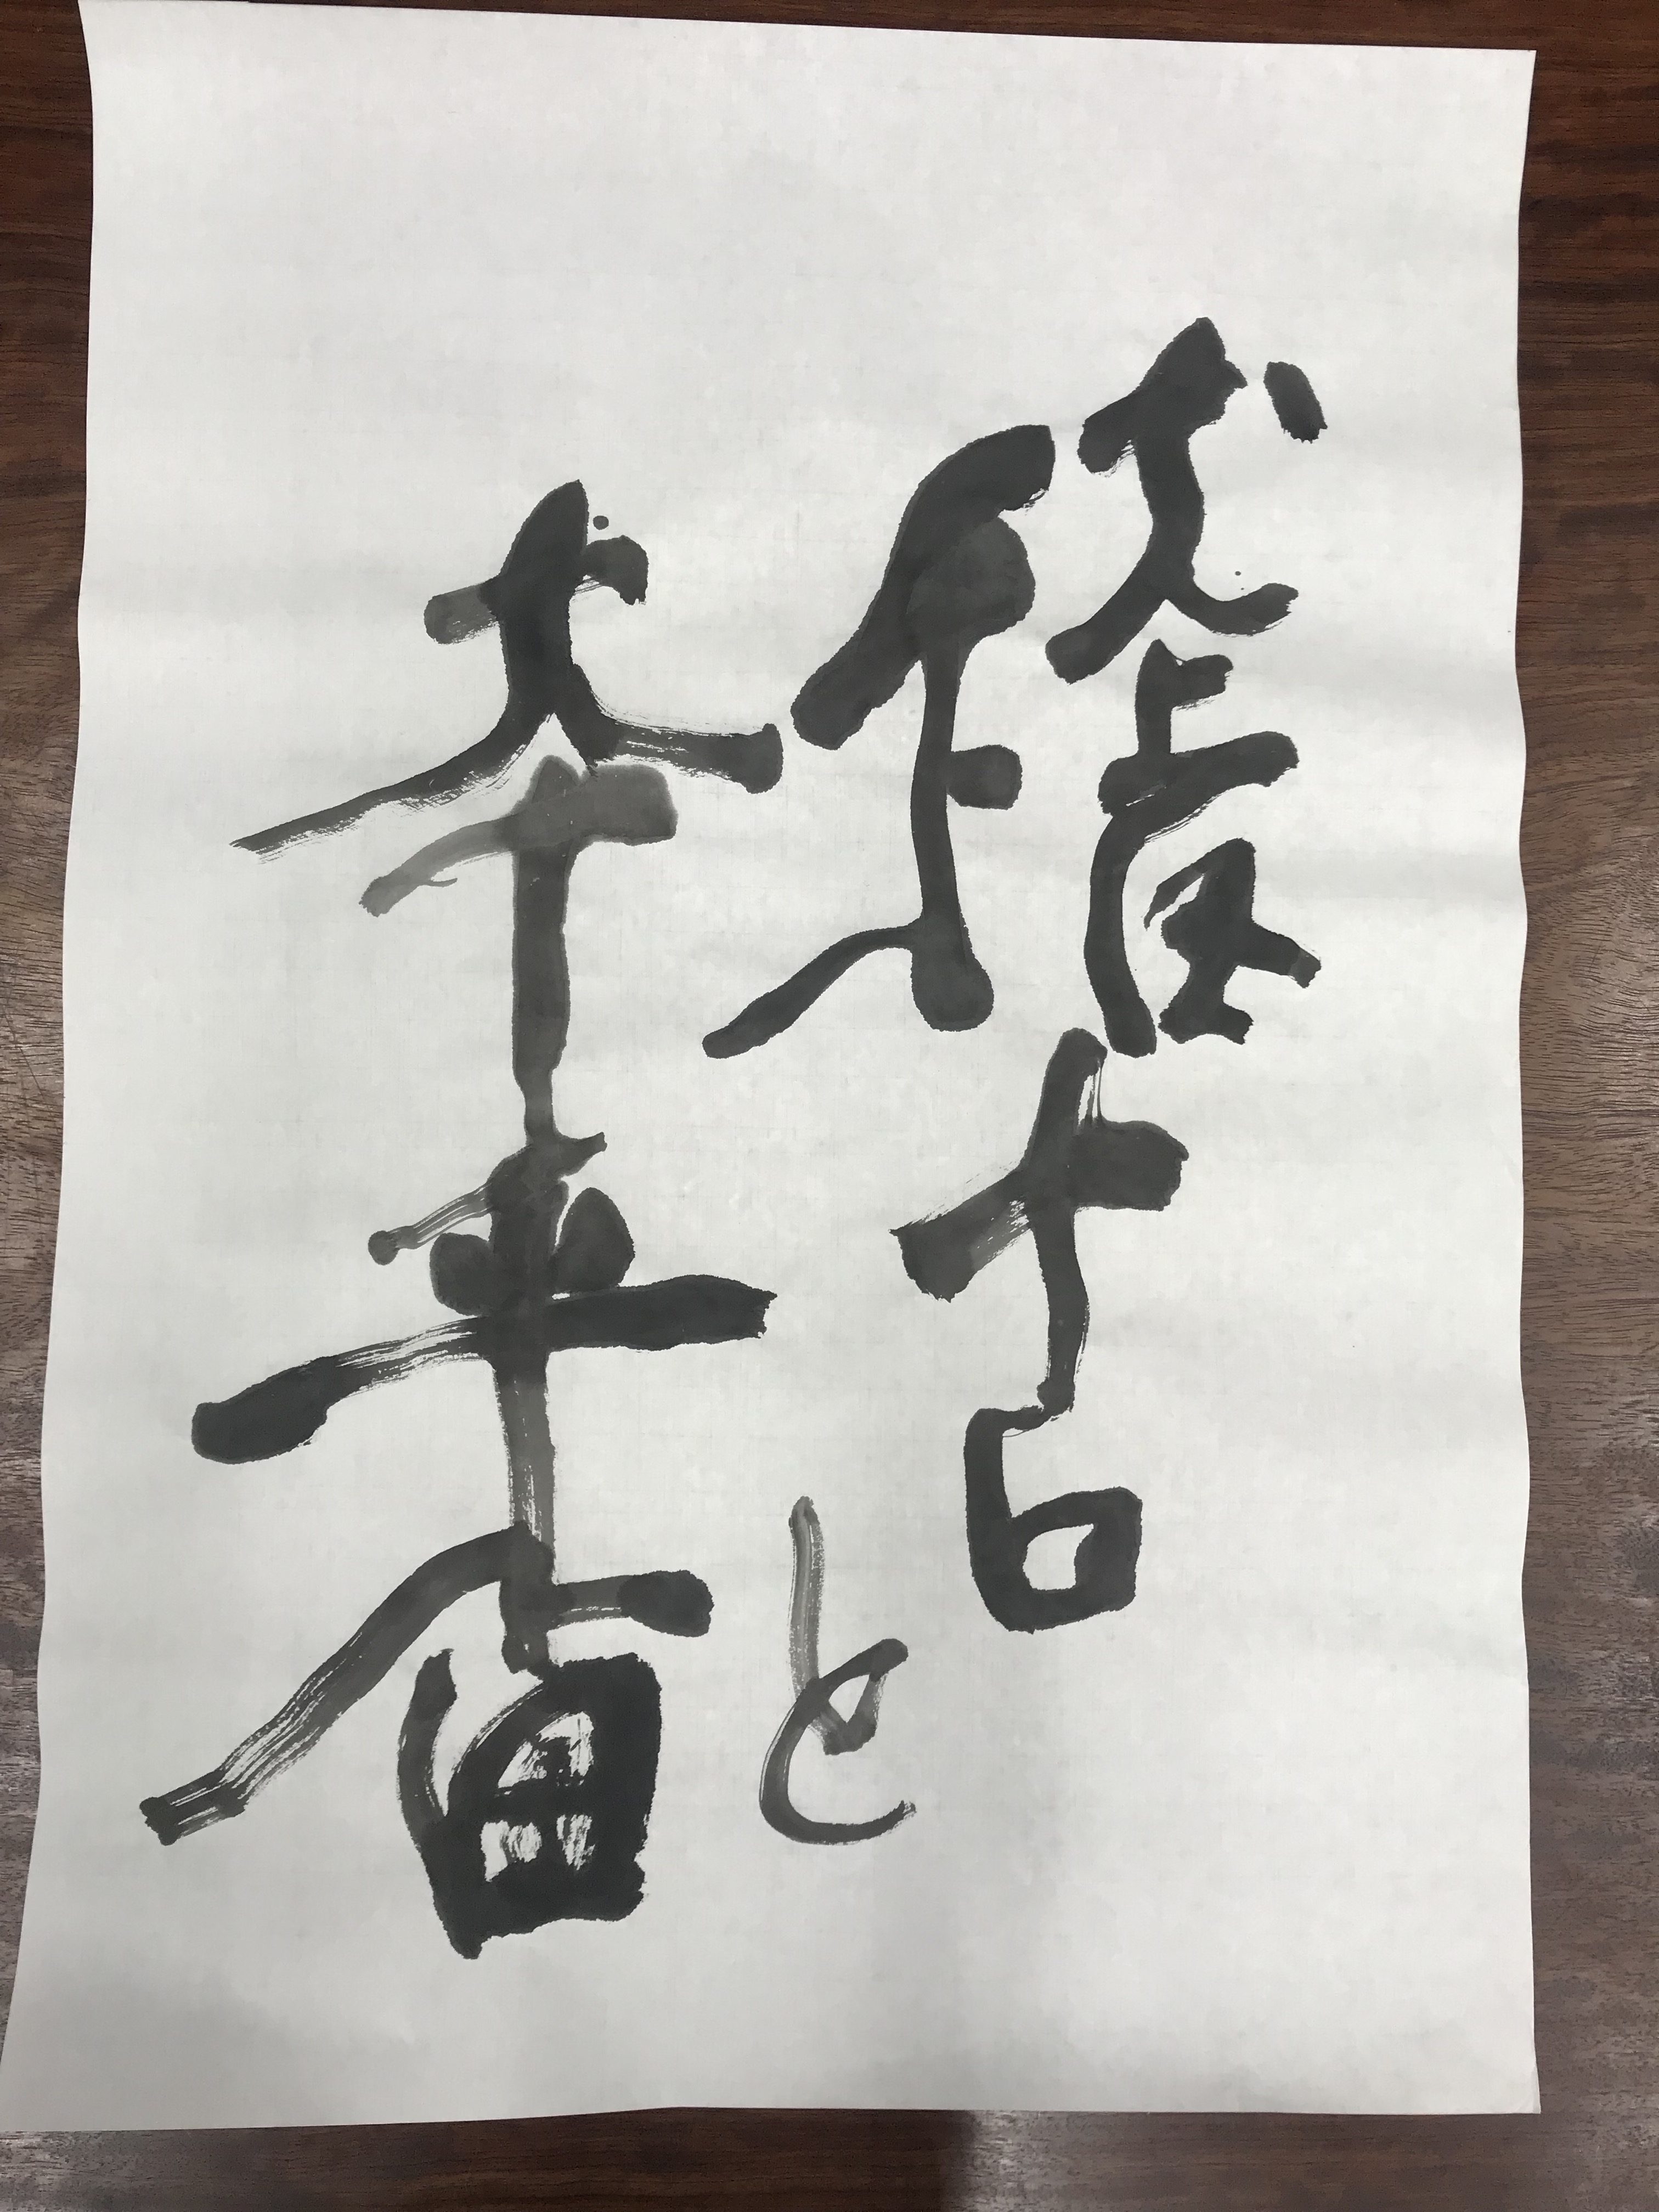 稽古
と
本番